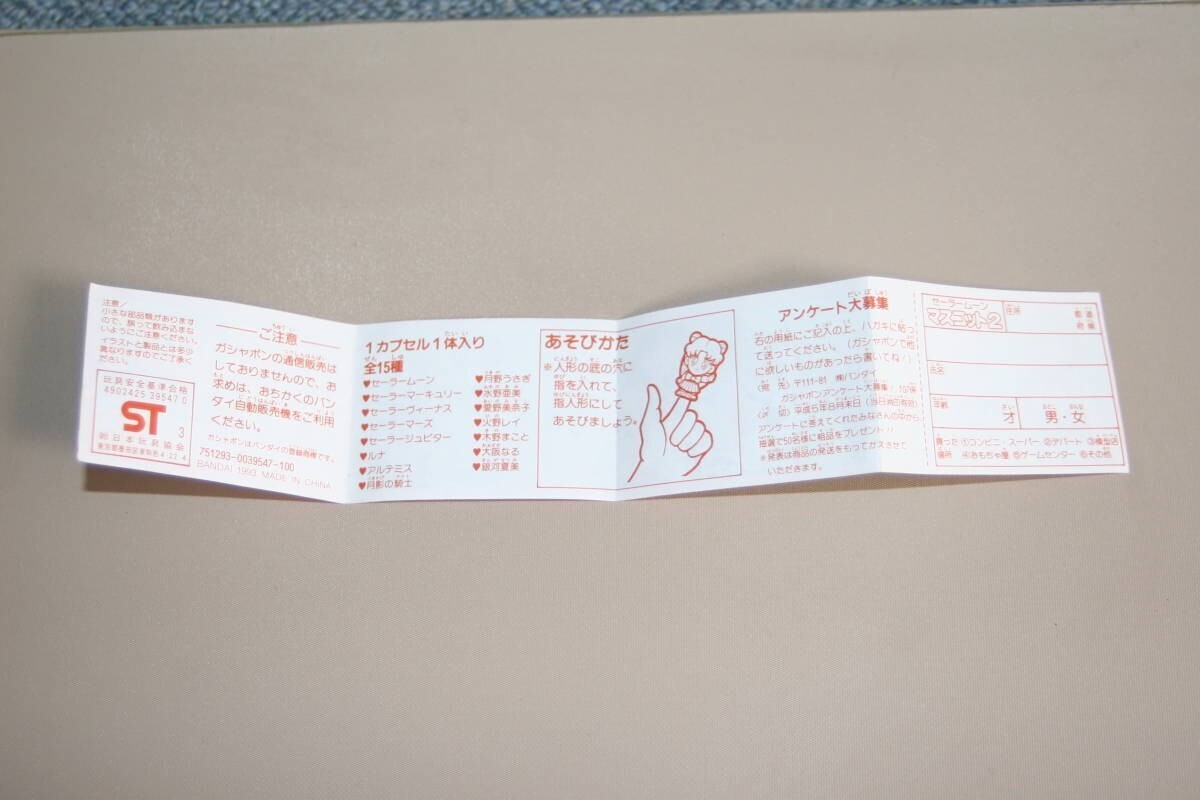 注意/
小さな部品類があります
ので、誤って飲み込まな
いようにご注意ください。
イラストと製品とは多少
異なりますのでご了承く
ださい。
玩具安全基準合格
4902425 39547 0
ST 3
㈳日本玩具協会
ご注意
ガシャポンの通信販売は
しておりませんので、お
求めは、おちかくのバン
ダイ自動販売機をご利用
ください。
ガシャポンはバンダイの登録商標です。
751293-0039547-100
BANDAI 1993 MADE IN CHINA
1カプセル1体入り
全15種
♥セーラームーン
♥セーラーマーキュリー
♥セーラーヴィーナス
♥セーラーマーズ
♥セーラージュピター
♥ルナ
♥アルテミス
♥月影の騎士
♥月野うさぎ
♥水野亜美
♥愛野美奈子
♥火野レイ
♥木野まこと
♥大阪なる
♥銀河夏美
あそびかた
※人形の底の穴に
指を入れて、
指人形にして
あそびましょう。
アンケート大募集
右の用紙にご記入の上、ハガキに貼っ
て送ってください。(ガシャポンで他
に欲しいものがあったら書いてね!)
(宛 先)〒111-81 ㈱バンダイ
ガシャポンアンケート大募集! 107係
(〆 切)平成5年8月末日(当日消印有効)
アンケートに答えてくれたみなさんの中から
抽選で50名様に粗品をプレゼント!!
※発表は商品の発送をもってかえさせて
いただきます。
セーラームーン
マスコット2
住所
都 道
府 県
氏名
年齢
才
男・女
買った ①コンビニ・スーパー ②デパート ③模型店
場所 ④おもちゃ屋 ⑤ゲームセンター ⑥その他